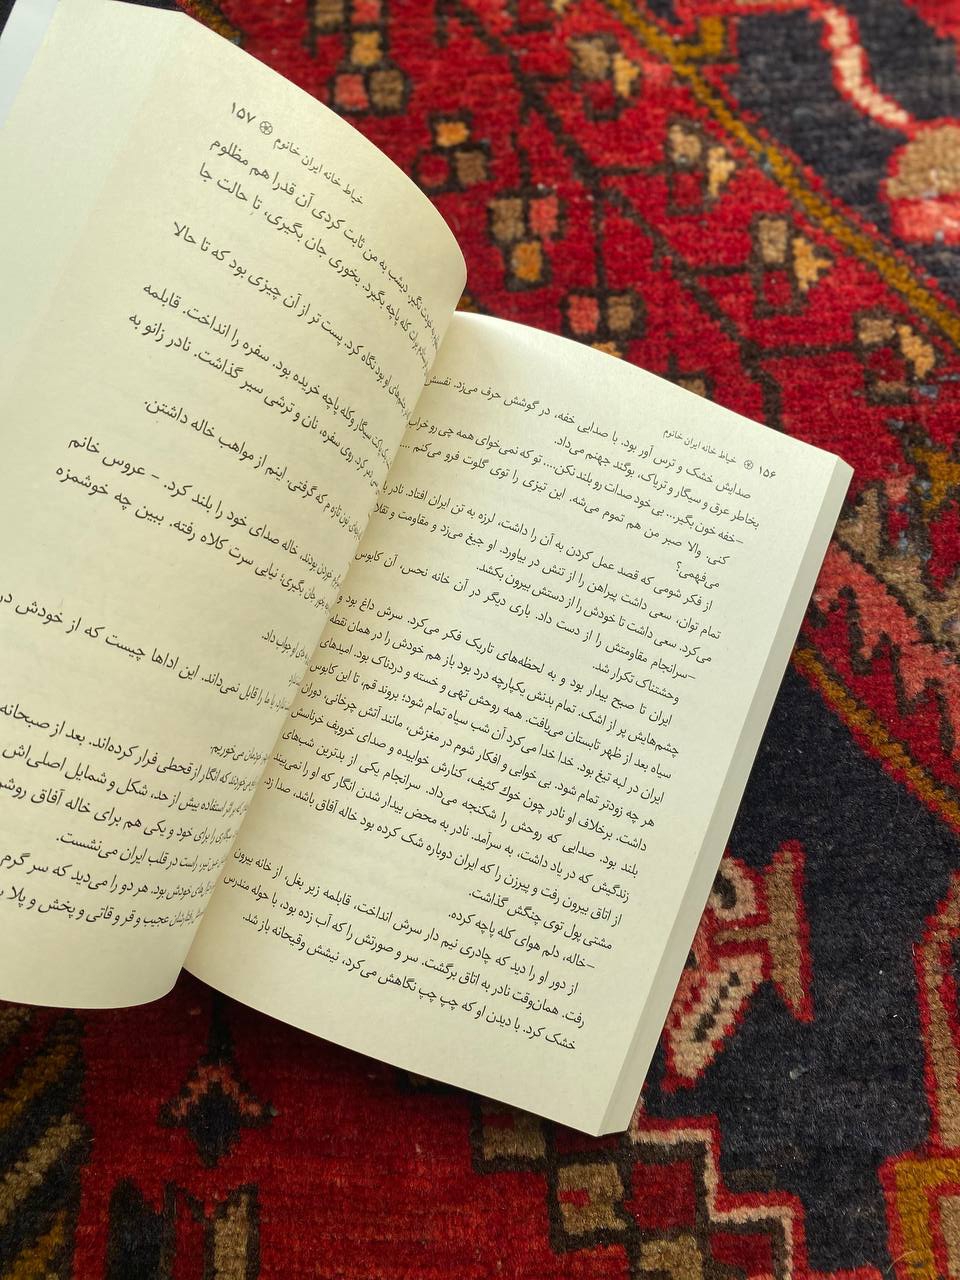 ۱۵۶ خیاط خانه ایران خانوم
صدایش خشک و ترس آور بود. با صدایی خفه، در گوشش حرف می‌زد. نفسش
بخاطر عرق و سیگار و تریاک، بوگند جهنم می‌داد.
–خفه خون بگیر... بی‌خود صدات رو بلند نکن... تو که نمی‌خوای همه چی رو خراب
کنی. والا صبر من هم تموم می‌شه. این تیزی را توی گلوت فرو می‌کنم ...
می‌فهمی؟
از فکر شومی که قصد عمل کردن به آن را داشت، لرزه به تن ایران افتاد. نادر با
تمام توان، سعی داشت پیراهن را از تنش در بیاورد. او جیغ می‌زد و مقاومت و تقلا
می‌کرد. سعی داشت تا خودش را از دستش بیرون بکشد.
–سرانجام مقاومتش را از دست داد. باری دیگر در آن خانه نحس، آن کابوس
وحشتناک تکرار شد.
ایران تا صبح بیدار بود و به لحظه‌های تاریک فکر می‌کرد. سرش داغ بود و
چشم‌هایش پر از اشک. تمام بدنش یکپارچه درد بود باز هم خودش را در همان نقطه
سیاه بعد از ظهر تابستان می‌یافت. همه روحش تهی و خسته و دردناک بود. امیدهای
ایران در لبه تیغ بود. خدا خدا می‌کرد آن شب سیاه تمام شود؛ بروند قم، تا این کابوس
هر چه زودتر تمام شود. بی خوابی و افکار شوم در مغزش، مانند آتش چرخانی، دوران
داشت. برخلاف او نادر چون خوك کثیف، کنارش خوابیده و صدای خروپف خرناسش
بلند بود. صدایی که روحش را شکنجه می‌داد. سرانجام یکی از بدترین شب‌های
زندگیش که در یاد داشت، به سرآمد. نادر به محض بیدار شدن انگار که او را نمی‌بیند
از اتاق بیرون رفت و پیرزن را که ایران دوباره شک کرده بود خاله آفاق باشد، صدا زد.
مشتی پول توی چنگش گذاشت.
–خاله، دلم هوای کله پاچه کرده.
از دور او را دید که چادری نیم دار سرش انداخت، قابلمه زیر بغل، از خانه بیرون
رفت. همان‌وقت نادر به اتاق برگشت. سر و صورتش را که آب زده بود، با حوله مندرس
خشک کرد. با دیدن او که چپ چپ نگاهش می‌کرد، نیشش وقیحانه باز شد.
خیاط خانه ایران خانوم ۱۵۷
نگیر. دیشب به من ثابت کردی آن قدرا هم مظلوم
کله پاچه بگیرد. بخوری جان بگیری، تا حالت جا
او بود نگاه کرد. پست تر از آن چیزی بود که تا حالا
پاکت سیگار وکله پاچه خریده بود. سفره را انداخت. قابلمه
کرد. روی سفره، نان و ترشی سیر گذاشت. نادر زانو به
که گرفتی. اینم از مواهب خاله داشتن.
خوردن بودند، خاله صدای خود را بلند کرد. – عروس خانم
جان بگیری؛ نیایی سرت کلاه رفته. ببین چه خوشمزه
او جواب داد.
ما را قابل نمی‌داند. این اداها چیست که از خودش در
می‌خوریم.
که انگار از قحطی فرار کرده‌اند. بعد از صبحانه
بر اثر استفاده بیش از حد، شکل و شمایل اصلی‌اش
سیگاری را برای خود و یکی هم برای خاله آفاق روشن
تیر، راست در قلب ایران می‌نشست.
خودش بود. هر دو را می‌دید که سر گرم
عجیب و قر و قاتی و پخش و پلا